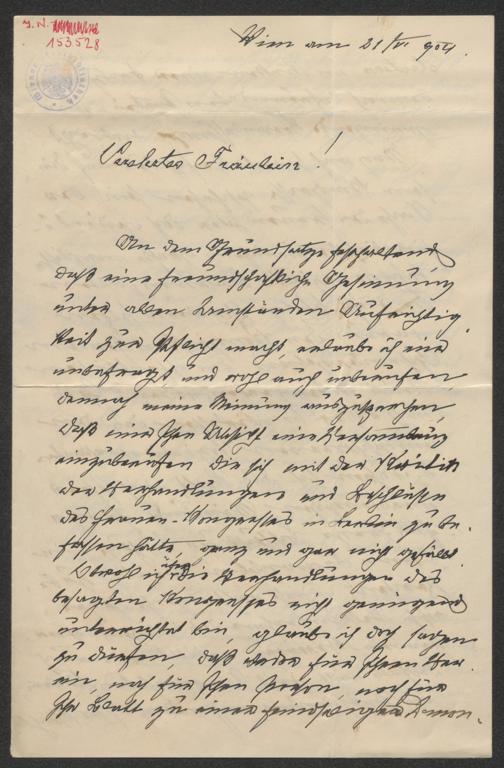 J. N.
153528
Wien am 21/VI 904.
Verehrtes Fräulein!
An dem Grundsatze festhaltend
daß eine freundschaftliche Gesinnung
unter allen Umständen Aufrichtig-
keit zur Pflicht macht, erlaube ich mir
unbefragt und wohl auch unberufen,
dennoch meine Meinung auszusprechen,
daß mir Ihre Absicht eine Versammlung
einzuberufen die sich mit der Kritik
der Verhandlungen und Beschlüsse
des Frauen-Kongresses in Berlin zu be-
fassen hätte, ganz und gar nicht gefällt.
Obwohl ich über die Verhandlungen des
besagten Kongresses nicht genügend
unterrichtet bin, glaube ich doch sagen
zu dürfen, daß weder für Ihren Ver-
ein, noch für Ihre Person, noch für
Ihr Blatt zu einer feindseligen Demon-